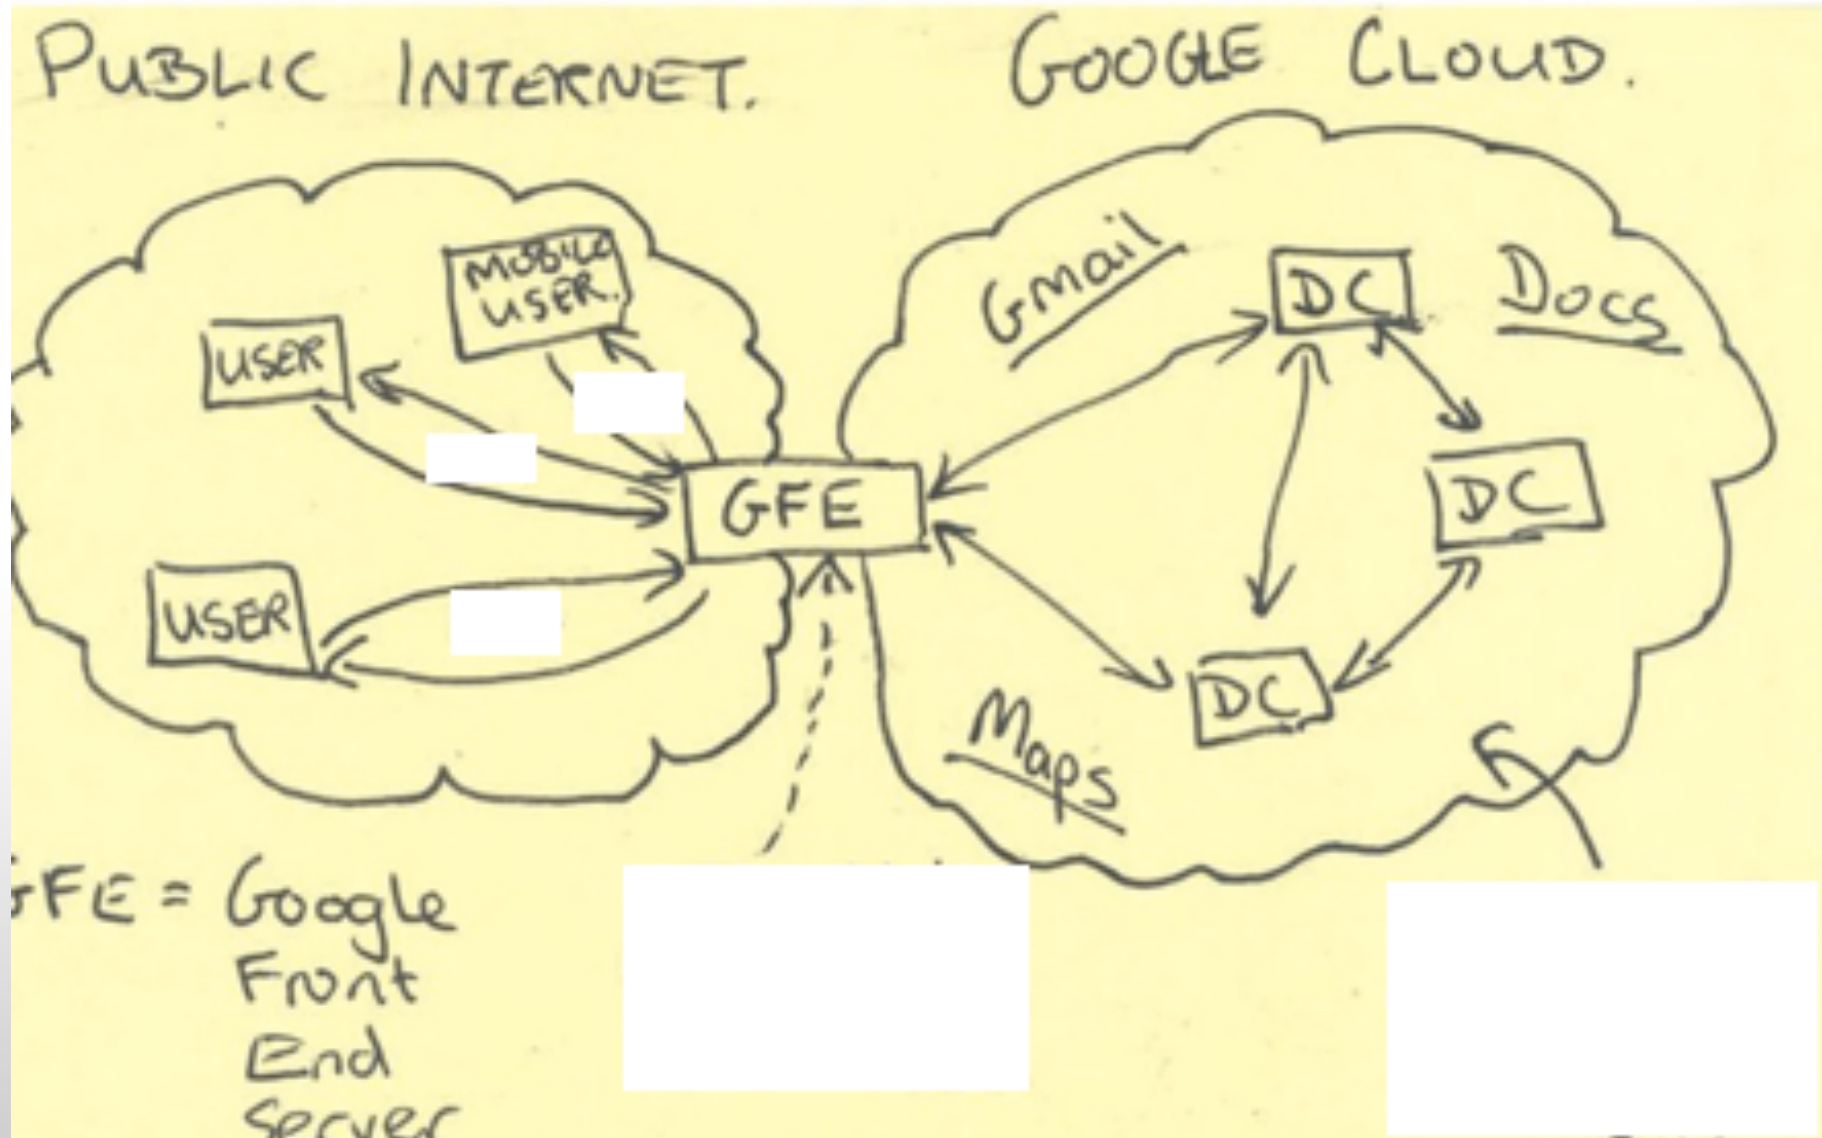 PUBLIC INTERNET.
GOOGLE CLOUD.
MOBILE
USER.
USER
USER
GFE
Gmail
DC
Docs
DC
DC
Maps
GFE = Google
Front
End
Server